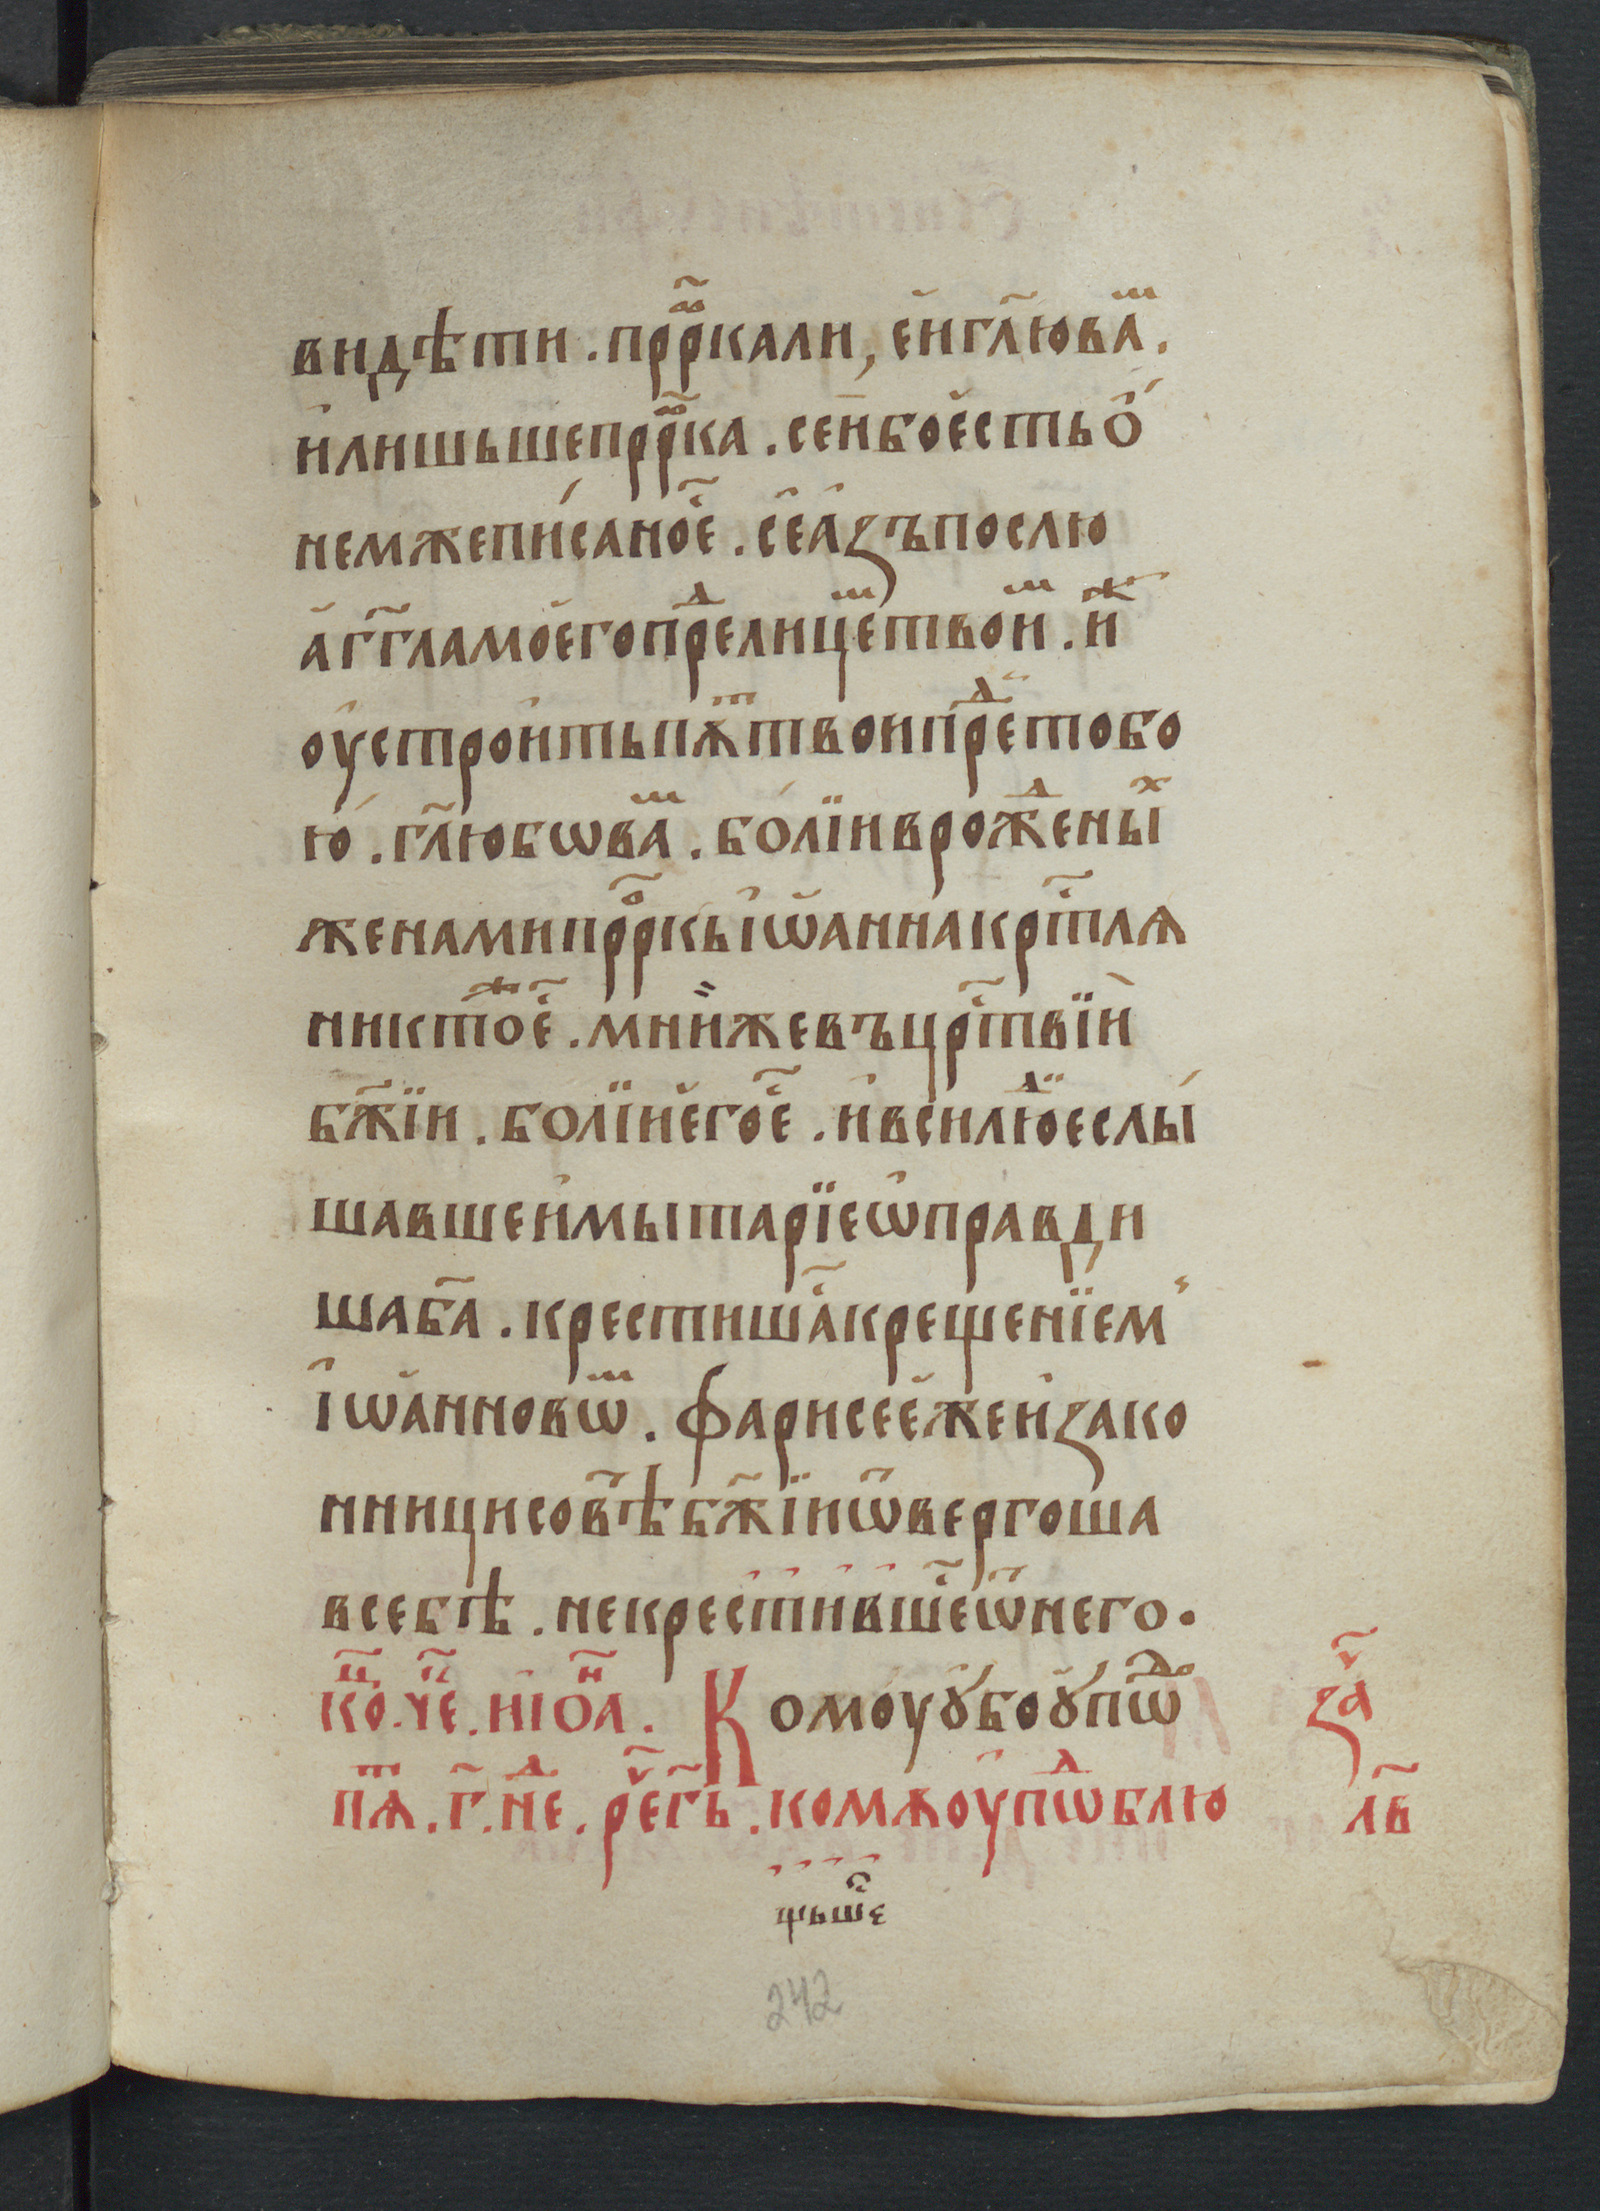 видѣти . прⷪ҇рⷪ҇ка ли , е҆и гл҃ю ваⷨ .
и҆ лишьше прⷪ҇рⷪ҇ка . сеи҆ бо е҆сть ѻ҆́
немже пи́саноеⷭ҇ . се҆ а҆зъ послю
а҆гг҃ла мое҆го преⷣ лицеⷨ твоиⷨ . иⷤ
оу҆строи҆ть пѫⷮ твои преⷣ тобо
ю́ . гл҃ю бѡ ваⷨ . бо́лїи в рожⷣеныⷯ
женами прⷪ҇ркъ і҆ѡа҆нна крⷭ҇тлѧ
никтоⷤ еⷭ҇ . мнии же въ црⷭ҇твїи
бж҃їи . болїи е҆го еⷭ҇ . и҆ вси люⷣе слы́
шавшеи҆ мытарїе ѡ҆правди
ша ба҃ . крестишаⷭ҇ крещенїем
і҆ѡа҆нновѡⷨ . фарисее҆ же и҆ зако
нници совⷮѣ бж҃їи ѿвергоша
в себѣ . не крестившеⷭ҇ ѿ него .
коⷰ҇ . чеⷮ . и і҆оⷩ҇а . Комоу ᲂу҆бо ᲂу҆пѡⷣо
пѧⷮ . г҃ . неⷣ . реⷱ҇ гь҃ . комѫ оу҆пѡⷣблю
заⷱ҇
лв҃
242